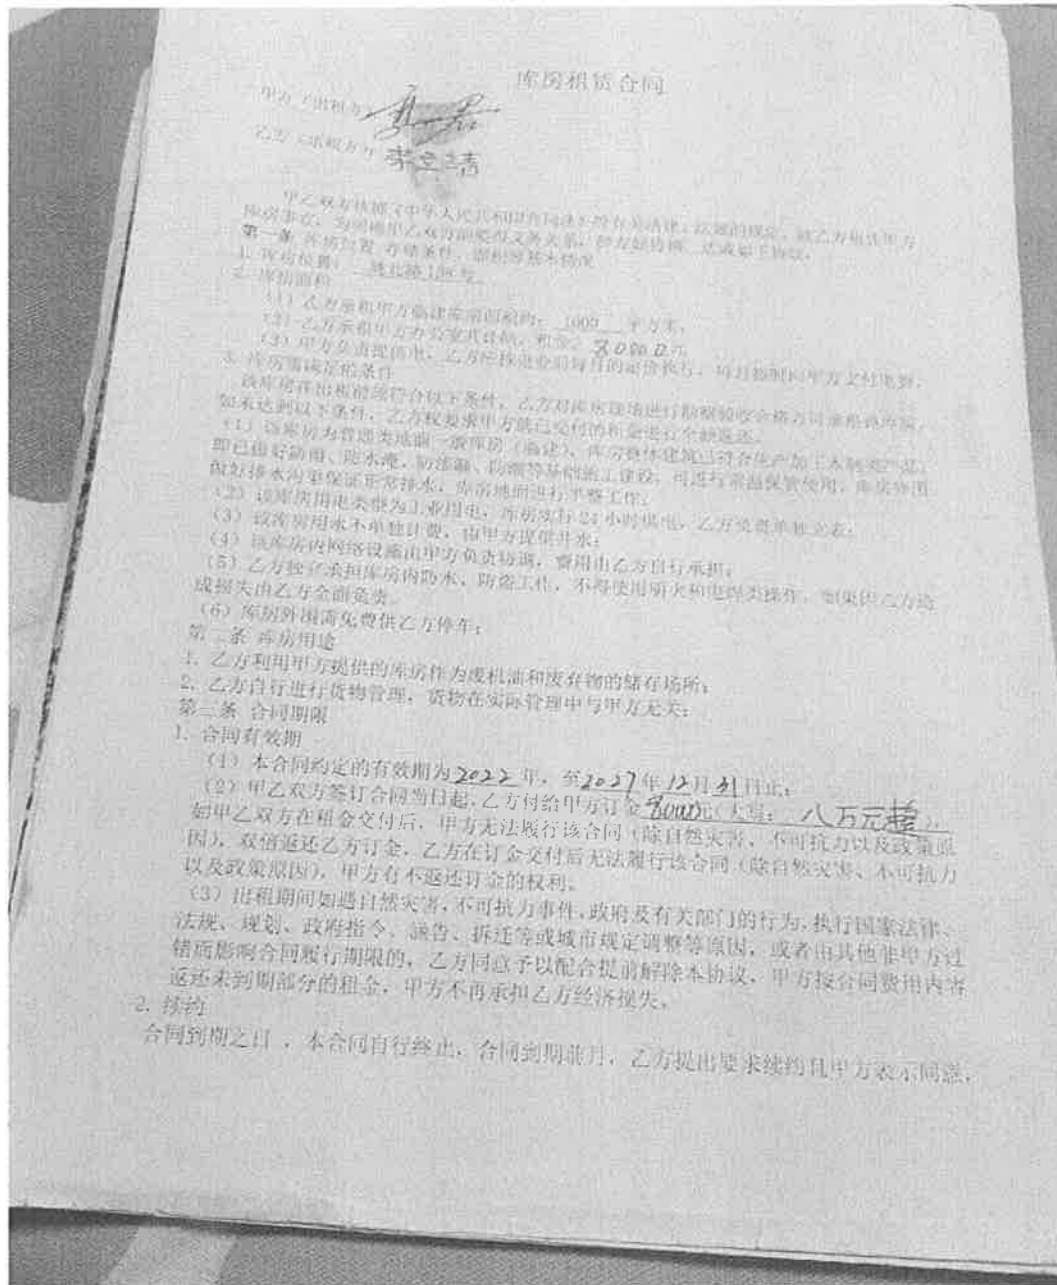 库房租赁合同
甲方（出租方）
乙方（承租方） 李立清
甲乙双方依据《中华人民共和国合同法》及有关法律、法规的规定，就乙方租赁甲方
库房事宜，为明确甲乙双方的权利义务关系，经方协商，达成如下协议：
第一条 库房位置 存储条件、面积等基本情况
1. 库房位置：
2. 库房面积
（1）乙方承租甲方临建库房面积约：1000 平方米，
（2）乙方承租甲方办公室共计 租金：80000元
（3）甲方负责提供电，乙方应按电业局每月的定价执行，每月按时向甲方支付电费。
3. 库房需满足的条件
该库房在出租前须符合以下条件，乙方对库房现场进行勘察验收合格方可承租该库房，
如未达到以下条件，乙方权要求甲方就已交付的租金进行全额返还。
（1）该库房为普通类地面一般库房（临建），库房整体建筑已符合生产加工木制类产品，
即已做好防雨、防水淹、防渗漏、防潮等基础施工建设，可进行常温保管使用，库房外围
做好排水沟渠保证正常排水，库房地面进行平整工作。
（2）该库房用电类型为工业用电，库房实行24小时供电，乙方负责单独立表；
（3）该库房用水不单独计费，由甲方提供井水；
（4）该库房内网络设施由甲方负责协调，费用由乙方自行承担；
（5）乙方独立承担库房内防水、防盗工作，不得使用明火和电焊类操作，如果因乙方造
成损失由乙方全面负责。
（6）库房外围需免费供乙方停车；
第二条 库房用途
1. 乙方利用甲方提供的库房作为废机油和废弃物的储存场所；
2. 乙方自行进行货物管理，货物在实际管理中与甲方无关；
第三条 合同期限
1. 合同有效期
（1）本合同约定的有效期为2022年，至2027年12月31日止；
（2）甲乙双方签订合同当日起，乙方付给甲方订金 80000元（大写： 八万元整 ），
如甲乙双方在租金交付后，甲方无法履行该合同（除自然灾害、不可抗力以及政策原
因），双倍返还乙方订金，乙方在订金交付后无法履行该合同（除自然灾害、不可抗力
以及政策原因），甲方有不返还订金的权利。
（3）出租期间如遇自然灾害，不可抗力事件，政府及有关部门的行为，执行国家法律、
法规、规划、政府指令、通告、拆迁等或城市规定调整等原因，或者由其他非甲方过
错而影响合同履行期限的，乙方同意予以配合提前解除本协议，甲方按合同费用内容
返还未到期部分的租金，甲方不再承担乙方经济损失。
2. 续约
合同到期之日，本合同自行终止，合同到期前月，乙方提出要求续约且甲方表示同意，